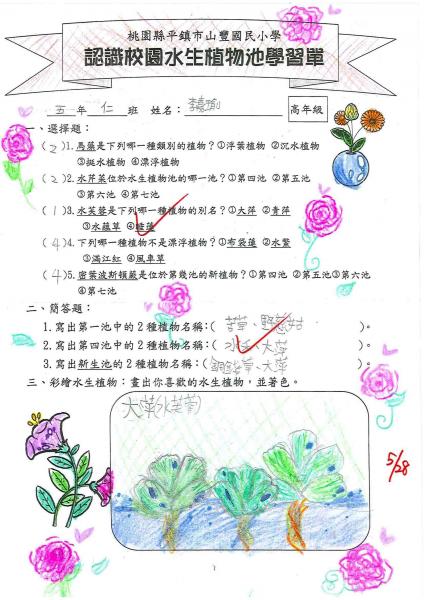 桃園縣平鎮市山豐國民小學
認識校園水生植物池學習單
五年 仁 班 姓名:
高年級
一、選擇題:
(2)1.馬藻是下列哪一種類別的植物?①浮葉植物 ②沉水植物
③挺水植物 ④漂浮植物
(2)2.水芹菜位於水生植物池的哪一池?①第四池 ②第五池
③第六池 ④第七池
(1)3.水芙蓉是下列哪一種植物的別名?①大萍 ②青萍
③水蘊草 ④睡蓮
(4)4.下列哪一種植物不是漂浮植物?①布袋蓮 ②水鱉
③滿江紅 ④風車草
(4)5.密葉波斯頓蕨是位於第幾池的新植物?①第四池 ②第五池③第六池
④第七池
二、簡答題:
1.寫出第一池中的2種植物名稱:( 、野慈姑 )。
2.寫出第四池中的2種植物名稱:( 、大萍 )。
3.寫出新生池的2種植物名稱:(銅錢草、大萍 )。
三、彩繪水生植物:畫出你喜歡的水生植物,並著色。
大萍(水芙蓉)
5/28
1